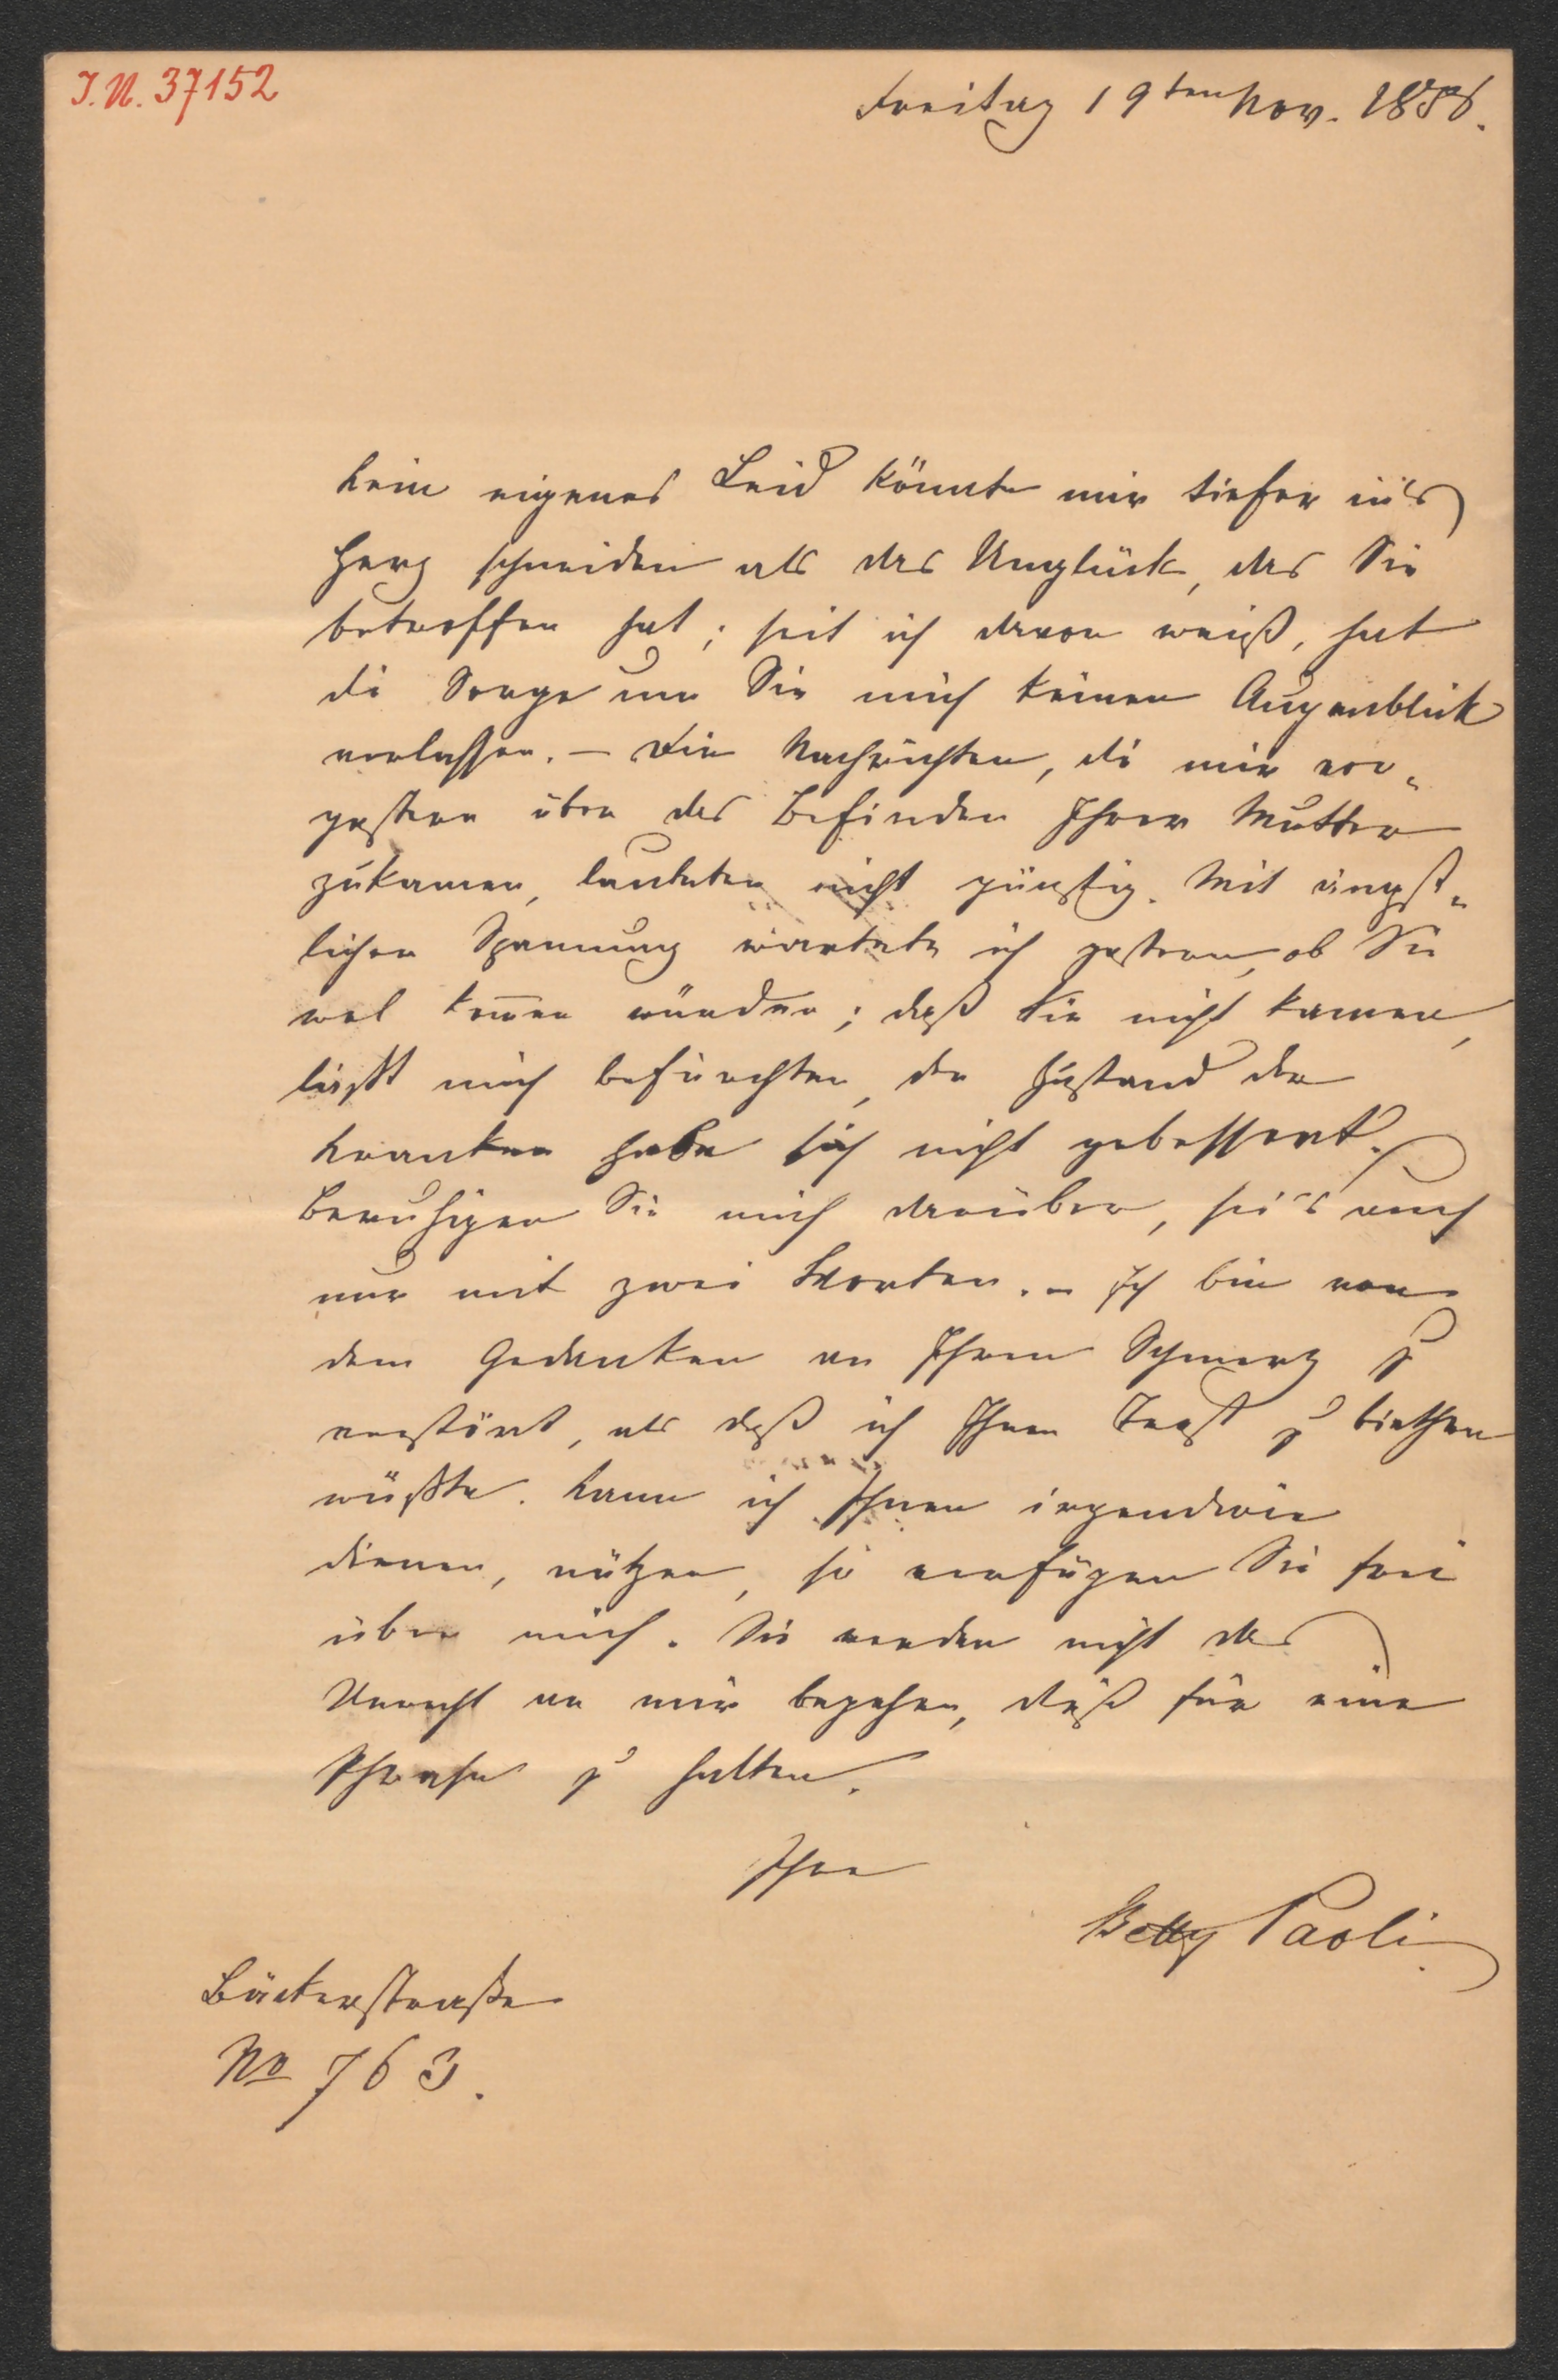 I.N. 37152
Freitag 19ten Nov. 1858.
Kein eigenes Leid könnte mir tiefer in's
Herz schneiden als das Unglück, das Sie
betroffen hat; seit ich davon weiß, hat
di Sorge um Sie mich keinen Augenblick
verlassen. – Die Nachrichten, di mir vor-
gestern über das Befinden Ihrer Mutter
zukamen, lauteten nicht günstig. Mit ängst-
licher Spannung wartete ich gestern, ob Sie
wol kom̅en würden; daß Sie nicht kamen,
läßt mich befürchten, der Zustand der
Kranken habe sich nicht gebessert.
Beruhigen Sie mich darüber, sei's auch
nur mit zwei Worten. – Ich bin von
dem Gedanken an Ihren Schmerz zu
verstört, als daß ich Ihnen Trost zu biethen
wüßte. Kann ich Ihnen irgendwie
dienen, nützen, so verfügen Sie frei
über mich. Sie werden nicht das
Unrecht an mir begehen, dieß für eine
Phrase zu halten.
Ihre
Betty Paoli.
Bäckerstraße
No 763.